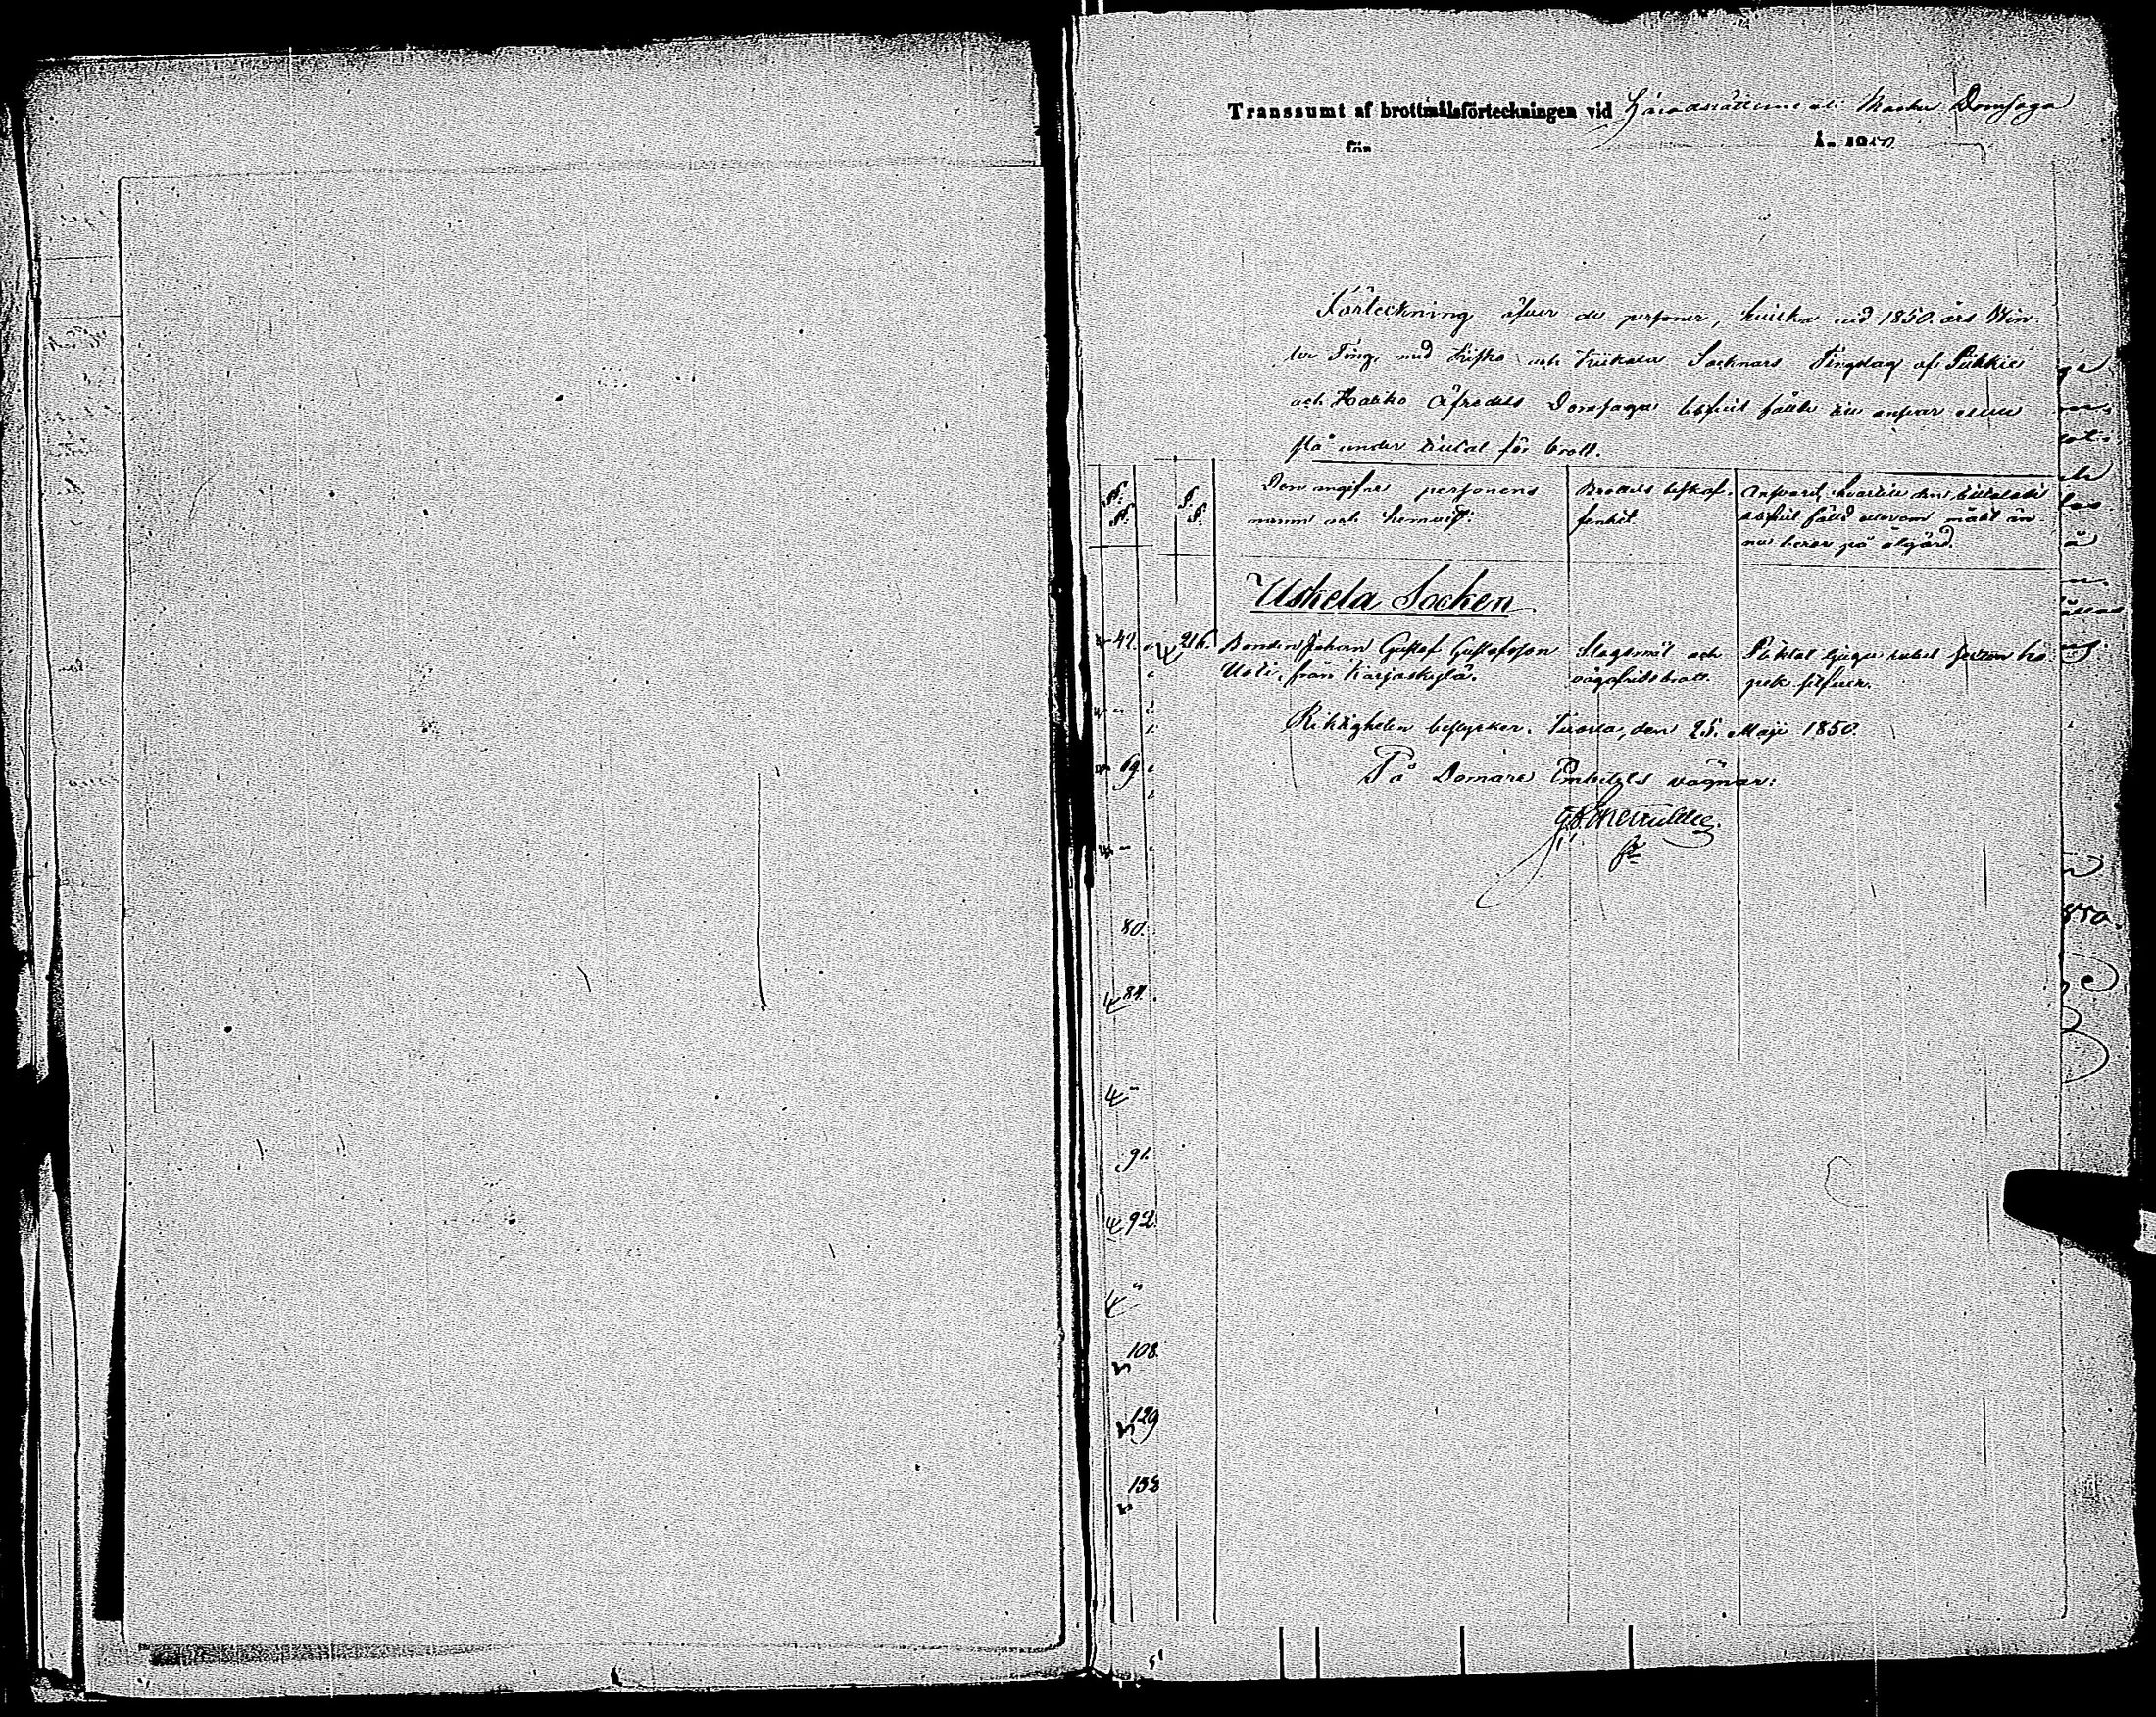 Transsumt af brottmålsförteckningen vid Häradsrätterne uti Masku Domsaga
för Å. 1850
Förteckning öfver de personer, hvilka vid 1850. års Win-
ter Ting med Kisko och Kiikala Socknars Tingslag af Piikkie
och Halikko Öfredels Domsaga blifvit fällde till ansvar eller
stå under tilltal för brott.
Den angifne personens
namn och hemvist.
Brottets beskaf-
fenhet.
Ansvaret, hvartill den tilltalade
blifvit fälld eller om målet än-
nu beror på åtgärd.
Uskela Socken
42. 216. Bonden Johan Gustaf Gustafsson
Uoti, från Karjaskylä.
Slagsmål och
vägafridsbrott.
Pliktat tjugu rubel sexton ko-
pek silfver.
Riktigheten bestyrker. Tirosta, den 25. Maji 1850.
På Domare Embetets vägnar:
69
80.
84.
91.
92.
108.
129
138
850.